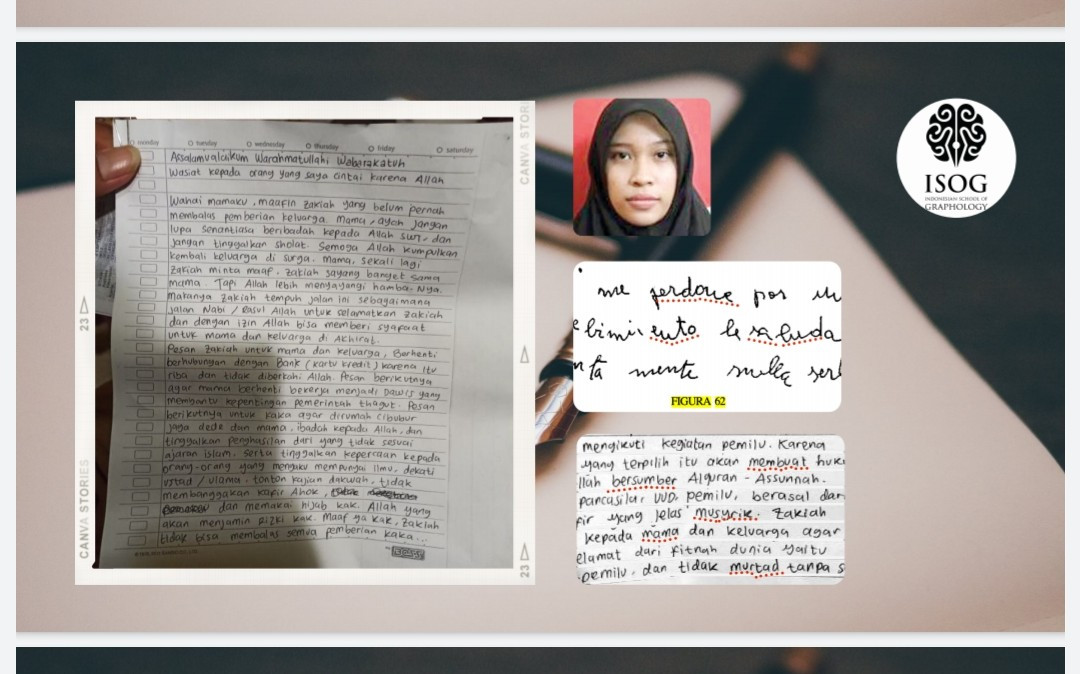 monday tuesday wednesday thursday friday saturday
Assalamualaikum Warahmatullahi Wabarakatuh
Wasiat kepada orang yang saya cintai karena Allah
Wahai mamaku, maafin Zakiah yang belum pernah
membalas pemberian keluarga. Mama, ayah jangan
lupa senantiasa beribadah kepada Allah SWT, dan
jangan tinggalkan sholat. Semoga Allah kumpulkan
kembali keluarga di surga. Mama, sekali lagi
zakiah minta maaf. Zakiah sayang banget sama
mama. Tapi Allah lebih menyayangi hamba-Nya.
Makanya zakiah tempuh jalan ini sebagaimana
jalan Nabi / Rasul Allah untuk selamatkan zakiah
dan dengan izin Allah bisa memberi syafaat
untuk mama dan keluarga di Akhirat.
Pesan Zakiah untuk mama dan keluarga, Berhenti
berhubungan dengan Bank (kartu kredit) karena itu
riba dan tidak diberkahi Allah. Pesan berikutnya
agar mama berhenti bekerja menjadi Dawis yang
membantu kepentingan pemerintah thogut. Pesan
berikutnya untuk kaka agar dirumah Cibubur
jaga dede dan mama, ibadah kepada Allah, dan
tinggalkan penghasilan dari yang tidak sesuai
ajaran islam. Serta tinggalkan kepercaan kepada
orang-orang yang mengaku mempunyai ilmu, dekati
ustad / ulama. tonton kajian dakwah, tidak
membanggakan kafir Ahok,
dan memakai hijab kak. Allah yang
akan menjamin rizki kak. Maaf ya kak, Zakiah
tidak bisa membalas semua pemberian kaka...
CANVA STORIES
23
CANVA STORI
23
me perdone por
le saluda
mente
FIGURA 62
mengikuti kegiatan pemilu. Karena
yang terpilih itu akan membuat huk
llah bersumber Alquran - Assunnah.
pancasila, UUD, pemilu, berasal dar
fir yang jelas musyrik. Zakiah
kepada mama dan keluarga agar
elamat dari fitnah dunia yaitu
pemilu, dan tidak murtad tanpa s
ISOG
INDONESIAN SCHOOL OF
GRAPHOLOGY